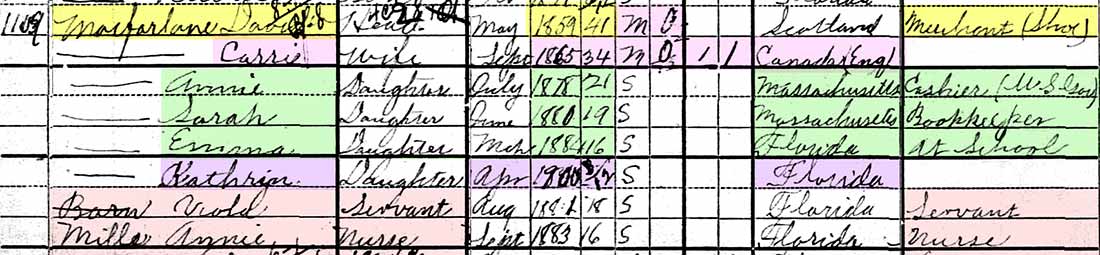 1109 Macfarlane David Head May 1859 41 M 0 Scotland Merchant (Shoe)
Carrie Wife Sept 1865 34 M 0 1 1 Canada (Eng)
Annie Daughter July 1878 21 S Massachusetts Cashier
Sarah Daughter June 1880 19 S Massachusetts Bookkeeper
Emma Daughter Mch 1884 16 S Florida At School
Kathrin Daughter Apr 1900 /12 S Florida
Barn Viola Servant Aug 1881 18 S Florida Servant
Mills Annie Nurse Sept 1883 16 S Florida Nurse